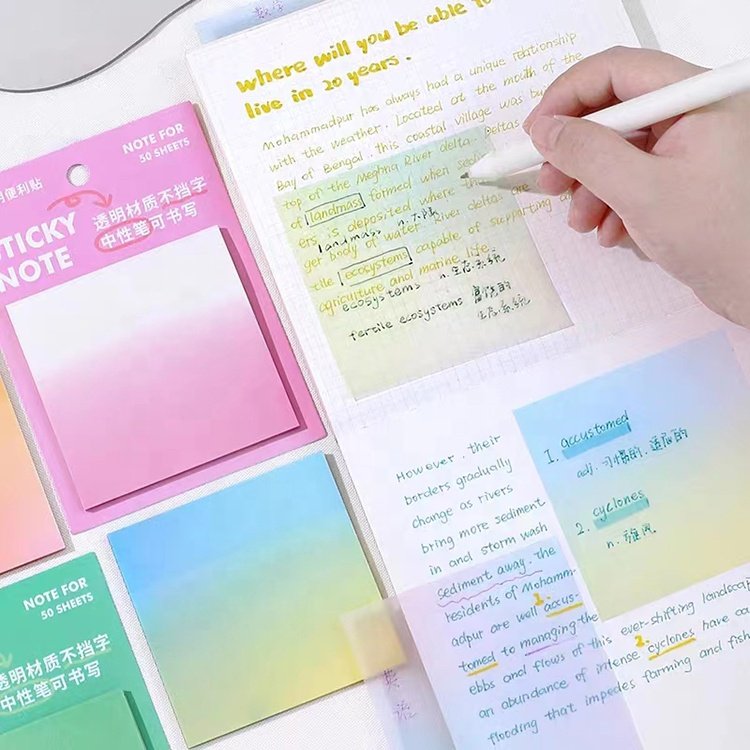 数学
where will you be able to
live in 20 years.
Mohammadpur has always had a unique relationship
with the weather. Located at the mouth of the
Bay of Bengal, this coastal village was
top of the Meghna River delta. Deltas
formed when
of landmass
ers is deposited where the
landmass n.
ger body of water. River deltas are
tile ecosystems capable of supporting
ecosystems n. 生态系统
agriculture and marine life.
fertile ecosystems
生态系统
NOTE FOR
50 SHEETS
明便利贴
STICKY
NOTE
透明材质不挡字
中性笔可书写
However, their
borders gradually
change as rivers
bring more sediment
in and storm wash
sediment away. The
residents of Mohamm-
1.
adpur are well accus-
tomed to managing the
ebbs and flows of this ever-shifting landscap
2.
an abundance of intense cyclones have
flooding that impedes farming and fish
英语
1. accustomed
adj. 习惯的. 适应的
2. cyclones
n. 旋风
NOTE FOR
50 SHEETS
透明材质不挡字
中性笔可书写